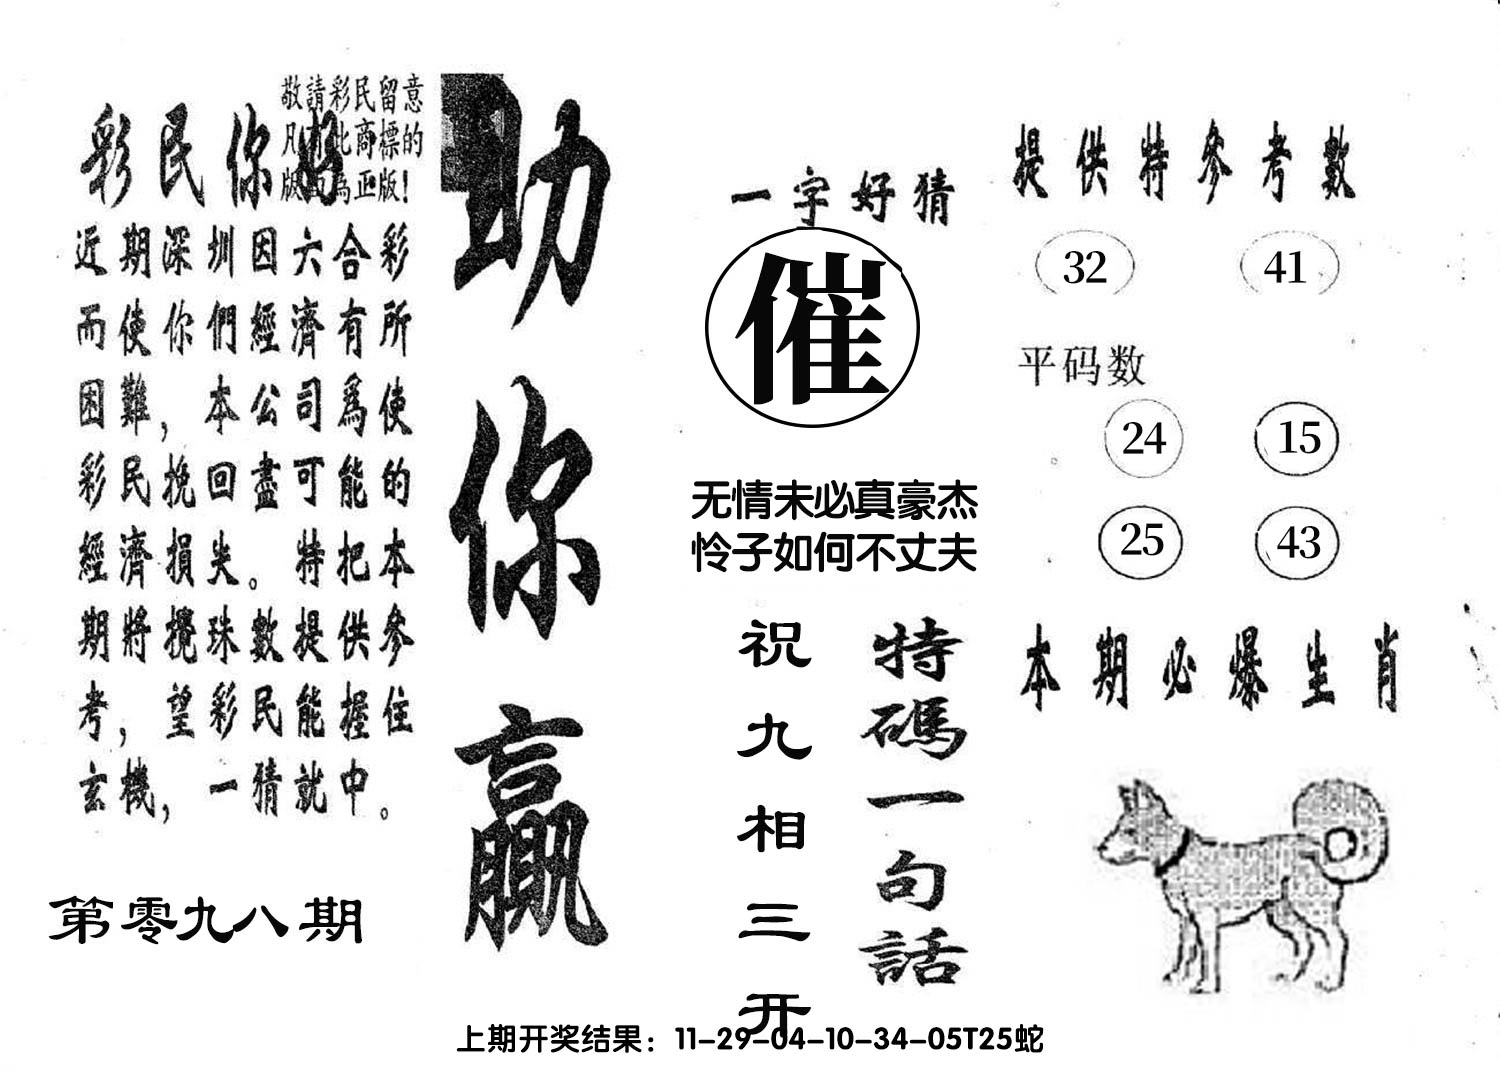 敬請彩民留意
凡有此商標的
版面為正版!
彩民你好
近期深圳因六合彩
而使你們經濟有所
困難，本公司爲使
彩民挽回盡可能的
經濟損失。特把本
期將攪珠數提供參
考，望彩民能握住
玄機，一猜就中。
第零九八期
助你贏
一字好猜
催
无情未必真豪杰
怜子如何不丈夫
特碼一句話
祝九相三开
提供特參考數
32 41
平码数
24 15
25 43
本期必爆生肖
上期开奖结果：11-29-04-10-34-05T25蛇